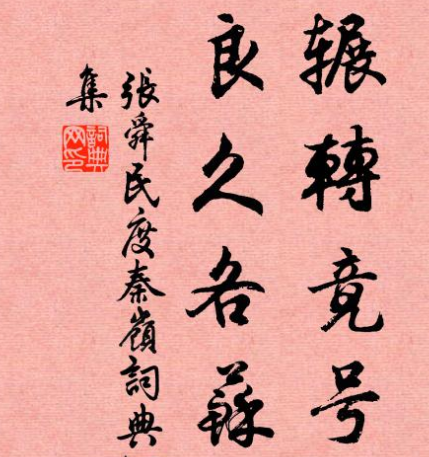 辗轉竟号
良久各蘇
張舜民度秦嶺詞典
集
詞典网印